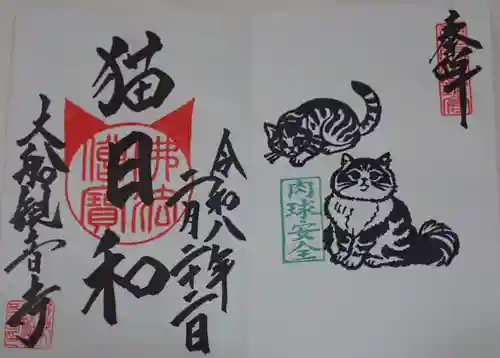 奉拝
肉球安全
令和八年
二月二十二日
猫日和
佛法僧寶
大船観音寺